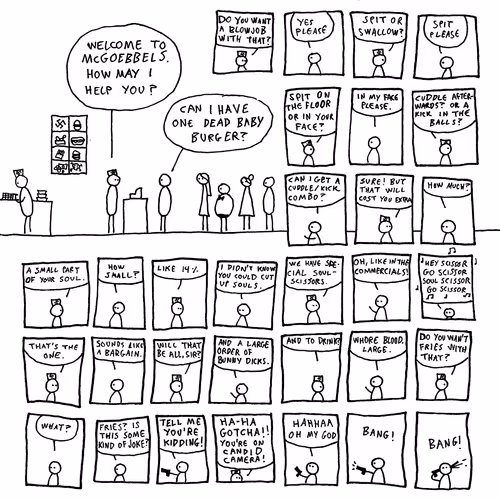 WELCOME TO
McGOEBBELS.
HOW MAY I
HELP YOU?
CAN I HAVE
ONE DEAD BABY
BURGER?
DO YOU WANT
A BLOWJOB
WITH THAT?
YES
PLEASE
SPIT OR
SWALLOW?
SPIT
PLEASE
SPIT ON
THE FLOOR
OR IN YOUR
FACE?
IN MY FACE
PLEASE.
CUDDLE AFTER-
WARDS? OR A
KICK IN THE
BALLS?
CAN I GET A
CUDDLE/KICK
COMBO?
SURE! BUT
THAT WILL
COST YOU EXTRA
HOW MUCH?
A SMALL PART
OF YOUR SOUL.
HOW
SMALL?
LIKE 14%.
I DIDN'T KNOW
YOU COULD CUT
UP SOULS.
WE HAVE SPE-
CIAL SOUL-
SCISSORS.
OH, LIKE IN THE
COMMERCIALS!
HEY SCISSOR
GO SCISSOR
SOUL SCISSOR
GO SCISSOR
THAT'S THE
ONE.
SOUNDS LIKE
A BARGAIN.
WILL THAT
BE ALL, SIR?
AND A LARGE
ORDER OF
BUNNY DICKS.
AND TO DRINK?
WHORE BLOOD.
LARGE.
DO YOU WANT
FRIES WITH
THAT?
WHAT?
FRIES? IS
THIS SOME
KIND OF JOKE?
TELL ME
YOU'RE
KIDDING!
HA-HA
GOTCHA!!
YOU'RE ON
CANDID
CAMERA!
HAHHAA
OH MY GOD
BANG!
BANG!